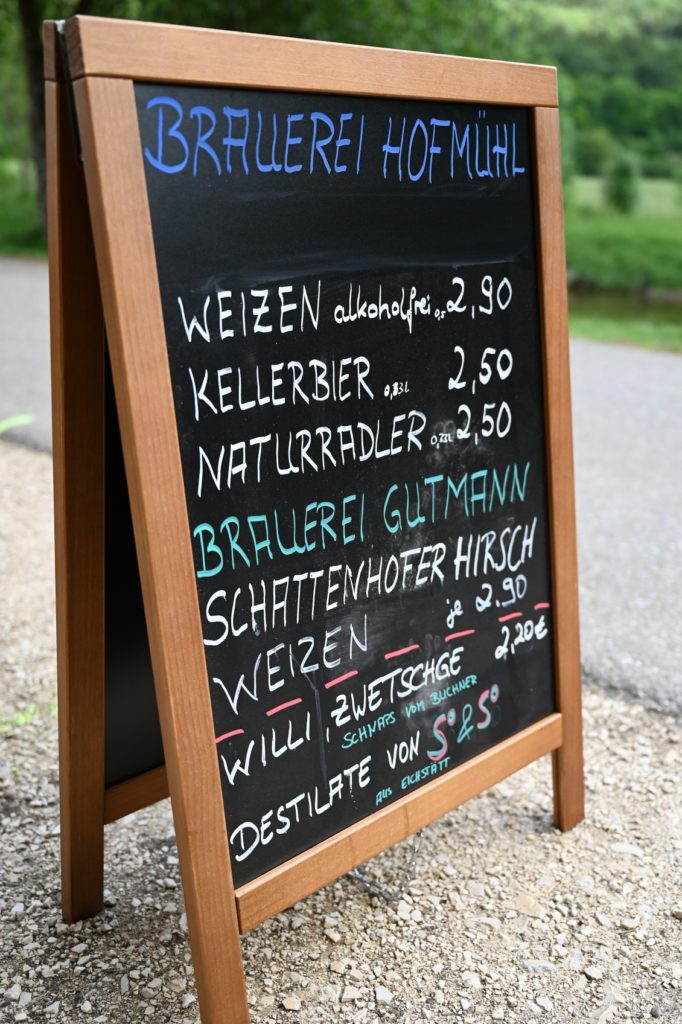 BRAUEREI HOFMÜHL
WEIZEN alkoholfrei 0,5 2,90
KELLERBIER 0,33L 2,50
NATURRADLER 0,33L 2,50
BRAUEREI GUTMANN
SCHATTENHOFER HIRSCH
WEIZEN je 2.90
WILLI, ZWETSCHGE 2,20€
SCHNAPS VOM BUCHNER
DESTILATE VON S° & S°
AUS EICHSTÄTT